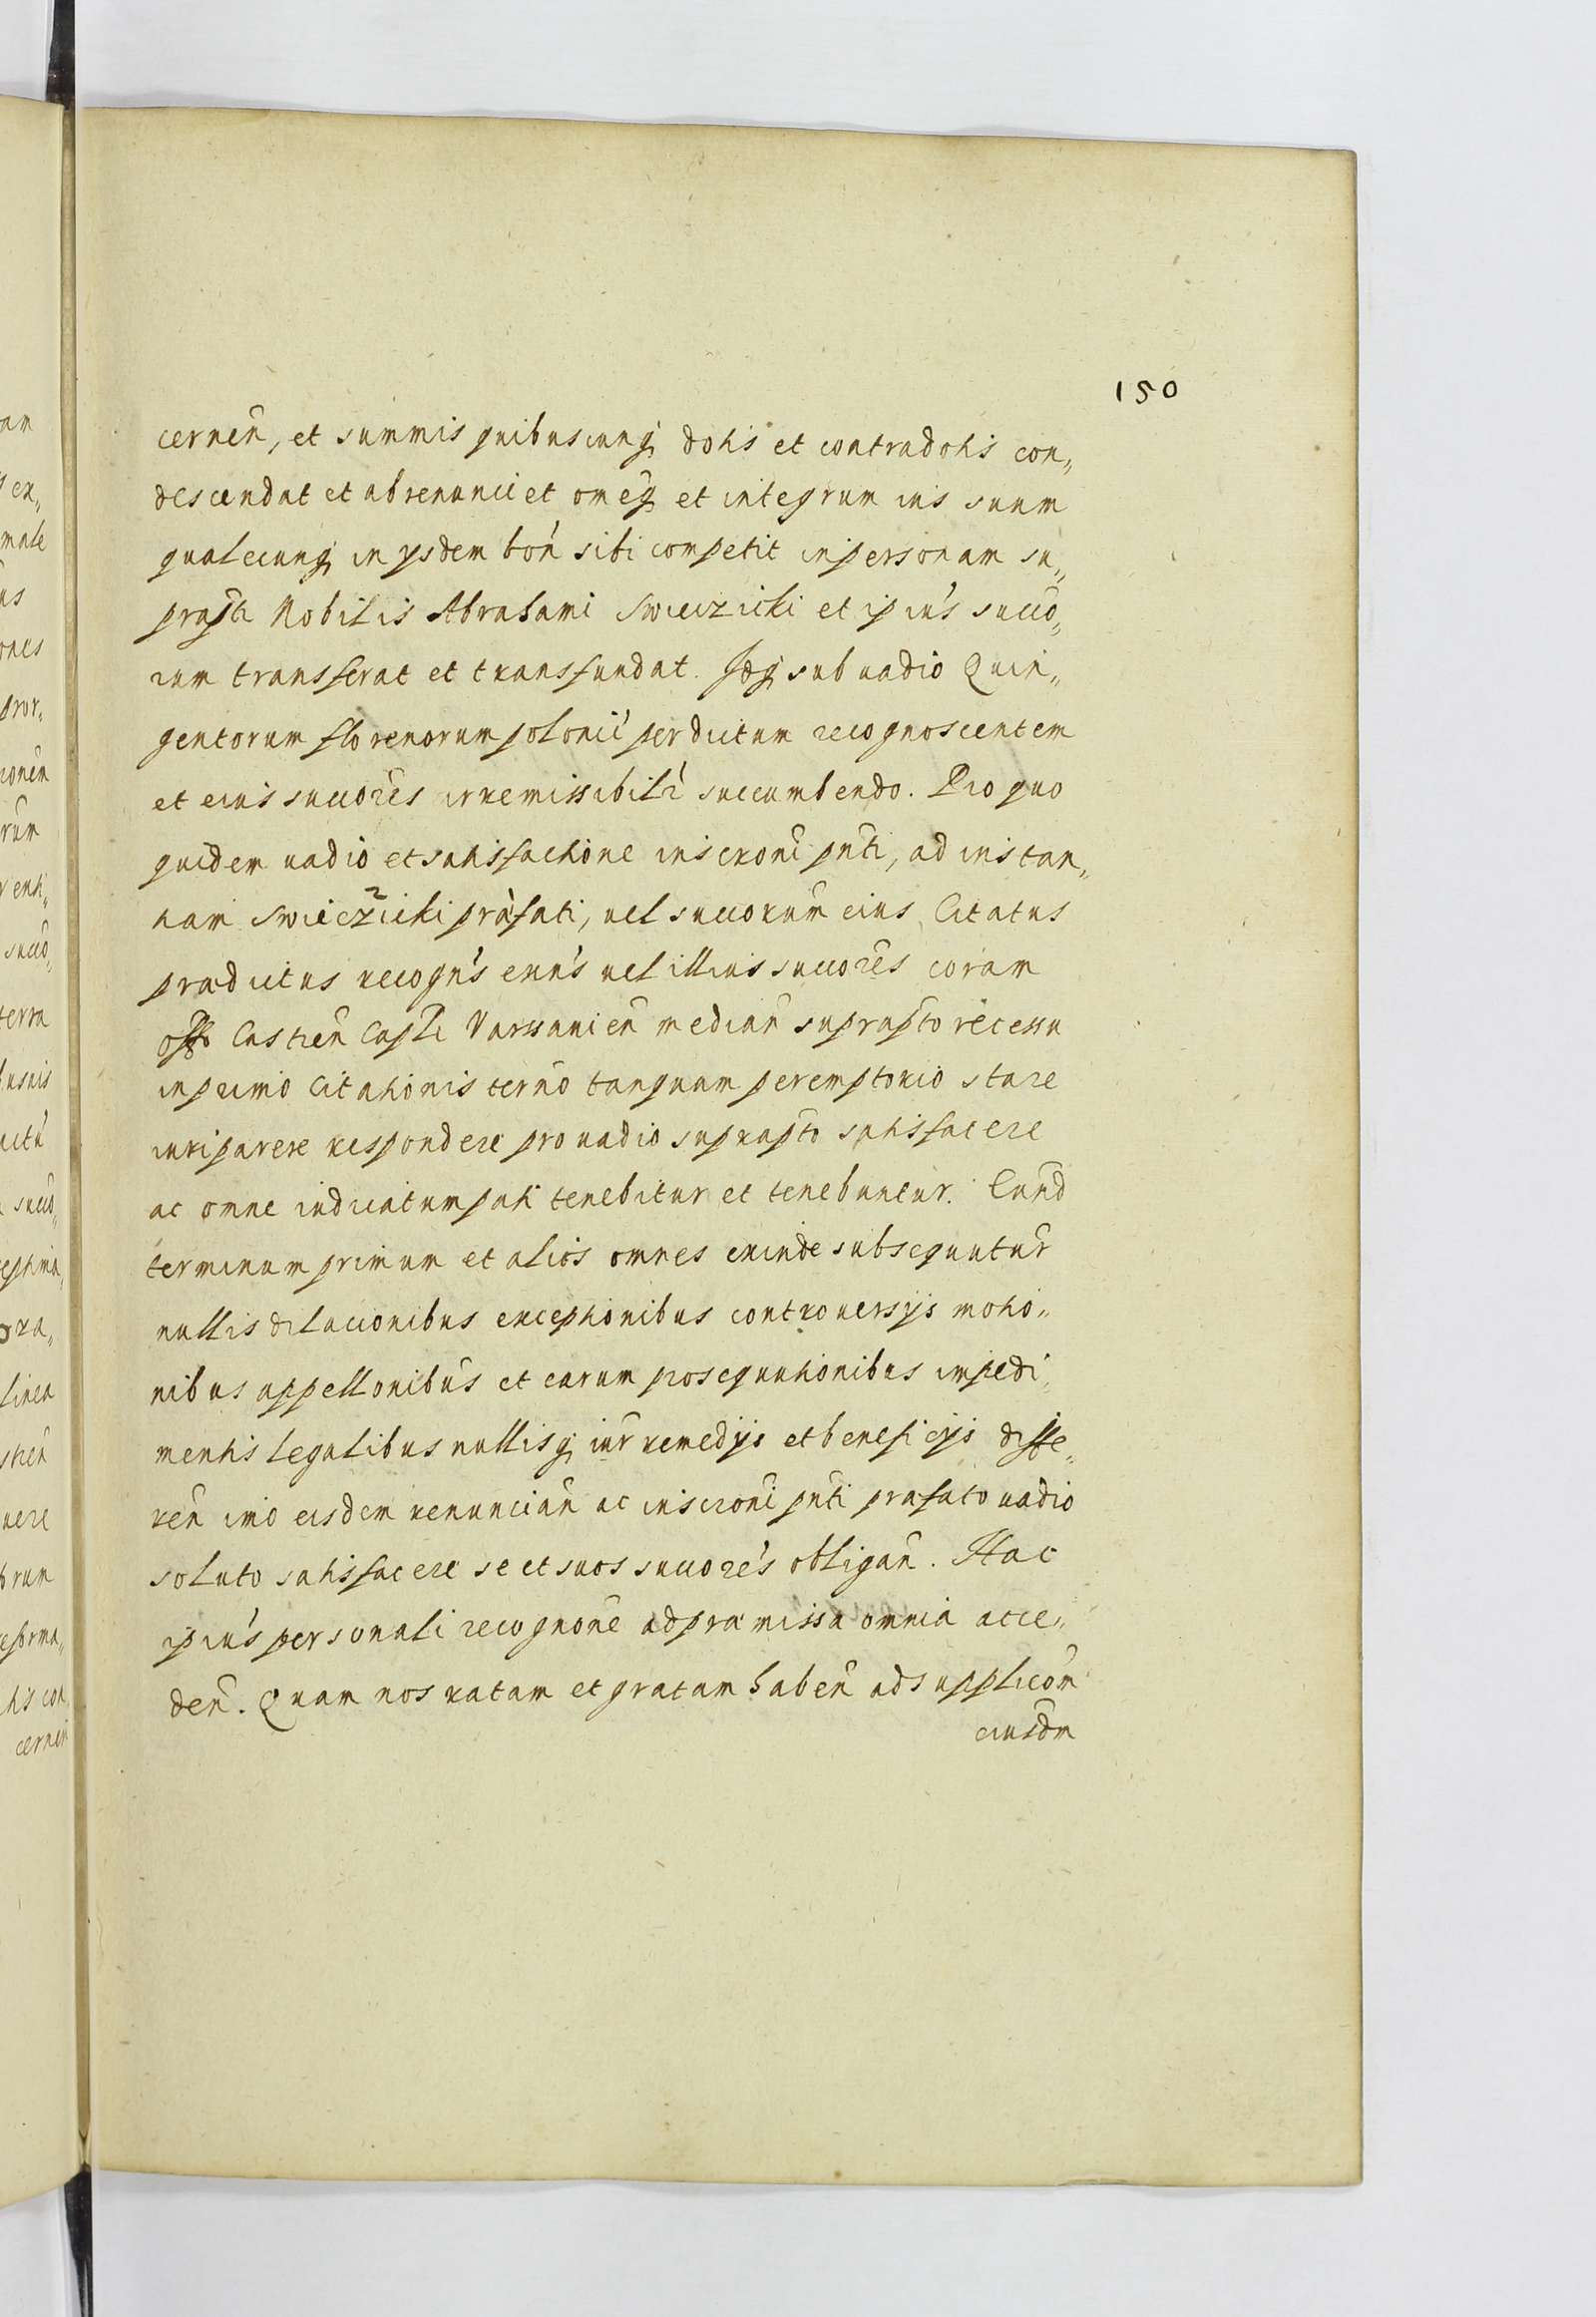 150
cernen̄, et summis quibuscunq; dotis et contradotis con„
descendat et abrenunciet omēq; et integrum ius suum
qualecunq; in ysdem bon̄ sibi competit in personam su„
prasc̄ti Nobilis Abrahami Swieczicki et ipiu's succo„
rum transferat et transfundat. Idq; sub uadio Quin„
gentorum florenorum polonic̄ per dictum recognoscentem
et eius succorēs irremissibilr̄ succumbendo. Pro quo
quidem uadio et satisfactione inscronī pn̄ti, ad instan„
tiam Swieczicki prafati, uel succorum̄ eius Citatus
pradictus recogn's enn's uel illius succorēs coram
off̄o Castren̄ Cap̄li Varssauien̄ median̄ supraso̅to recessu
in primo Citationis termō tanquam peremptorio stare
iuri parere respondere pro uadio suprasc̄to satisfacere
ac omne iudicatum pati tenebitur et tenebuntur. Eund̄
terminum primum et alios omnes exinde subsequntur̄
nullis dilacionibus exceptionibus controuersijs motio„
nibus appellonibus̄ et earum prosequutionibus impedi„
mentis legalibus nullisq; iur̄ remedijs et beneficijs diffe„
ren̄ imo eisdem renuncian̄ ac inscronī pn̄ti prafato uadio
soluto satisfacere se et suos succore's obligan̄. Hac
ipiu's personali recognonē ad pramissa omnia acce„
den̄. Quam nos ratam et gratam haben̄ ad supplicon̄
eiusdm